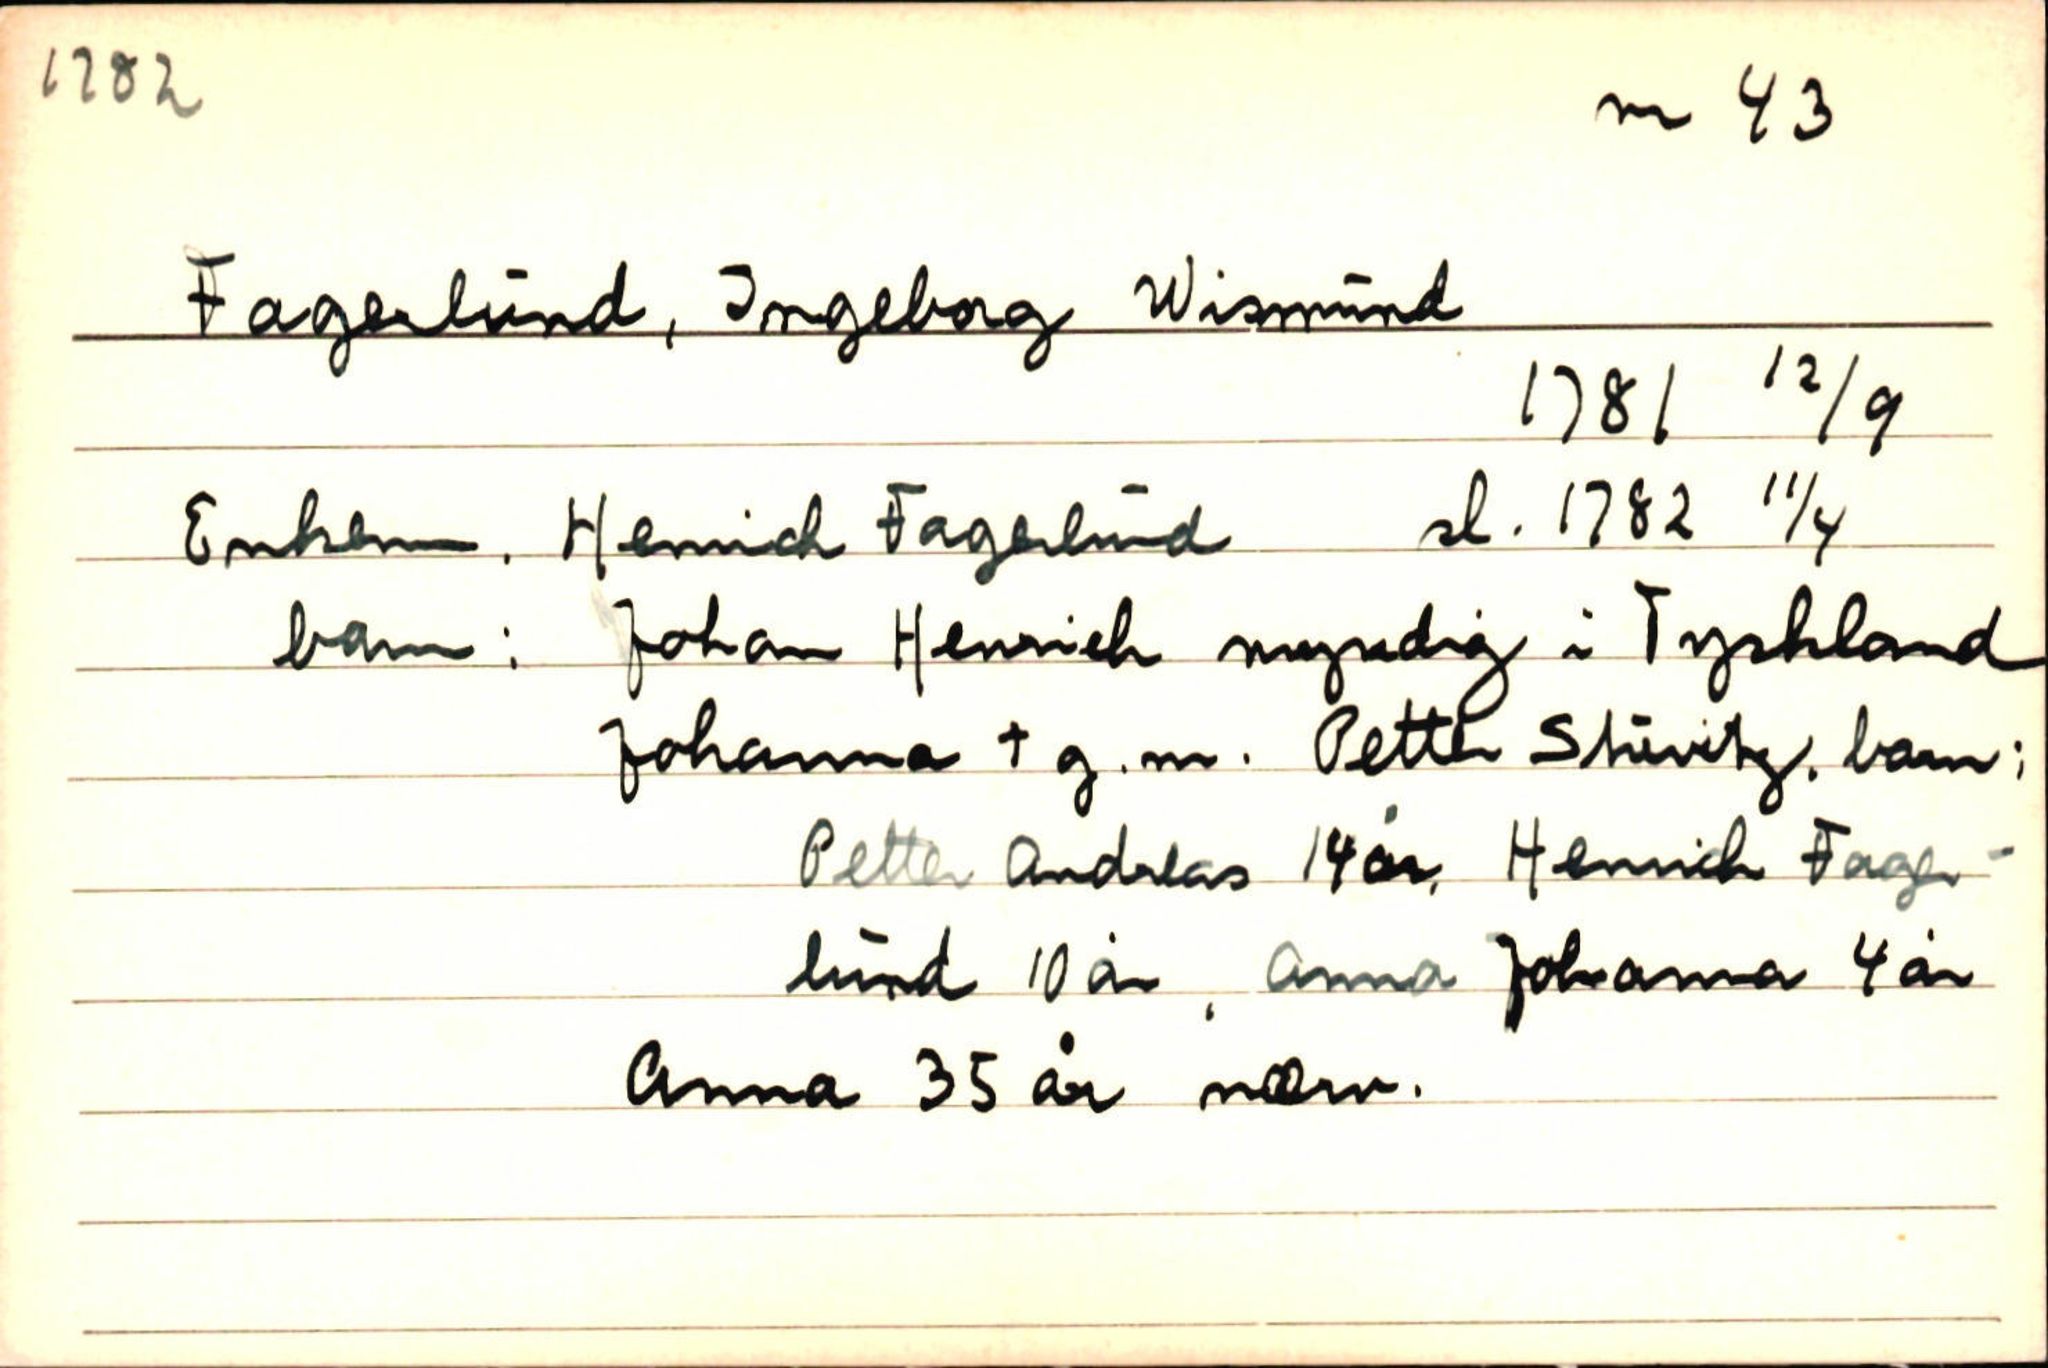 1782
nr 43
Fagerlund, Ingeborg Wismund
1781 12/9
Enkem. Henrich Fagerlund sl. 1782 11/4
barn: Johan Henrich myndig i Tyskland
Johanna + g.m. Petter Stuvitz. barn:
Petter Andreas 14 år, Henrich Fager-
lund 10 år, Anna Johanna 4 år
Anna 35 år nærv.